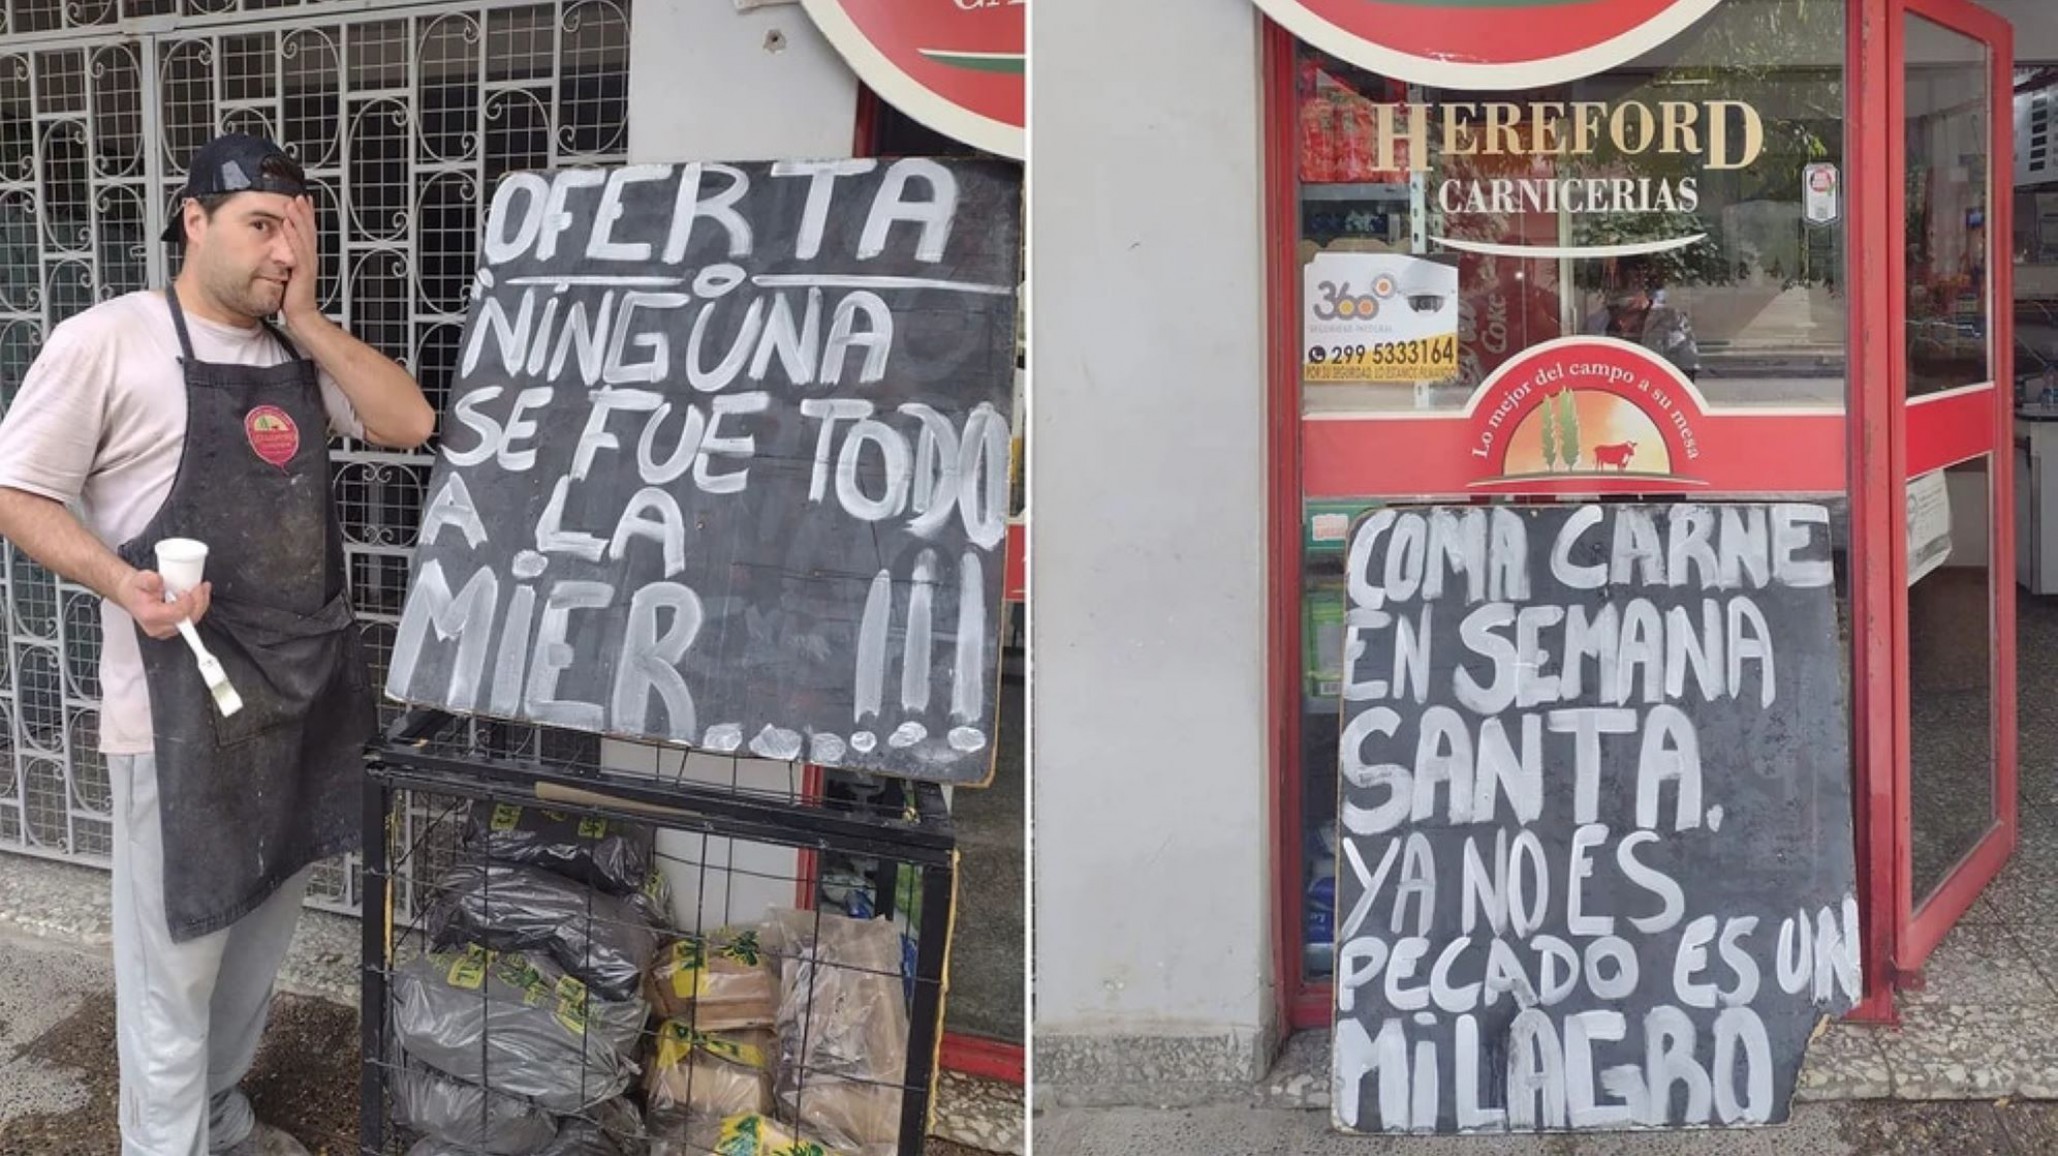 OFERTA
NINGUNA
SE FUE TODO
A LA
MIER......!!!
HEREFORD
CARNICERIAS
360
SEGURIDAD INTEGRAL
299 5333164
POR SU SEGURIDAD, LO ESTAMOS FILMANDO
Coke
Lo mejor del campo a su mesa
COMA CARNE
EN SEMANA
SANTA.
YA NO ES
PECADO ES UN
MILAGRO